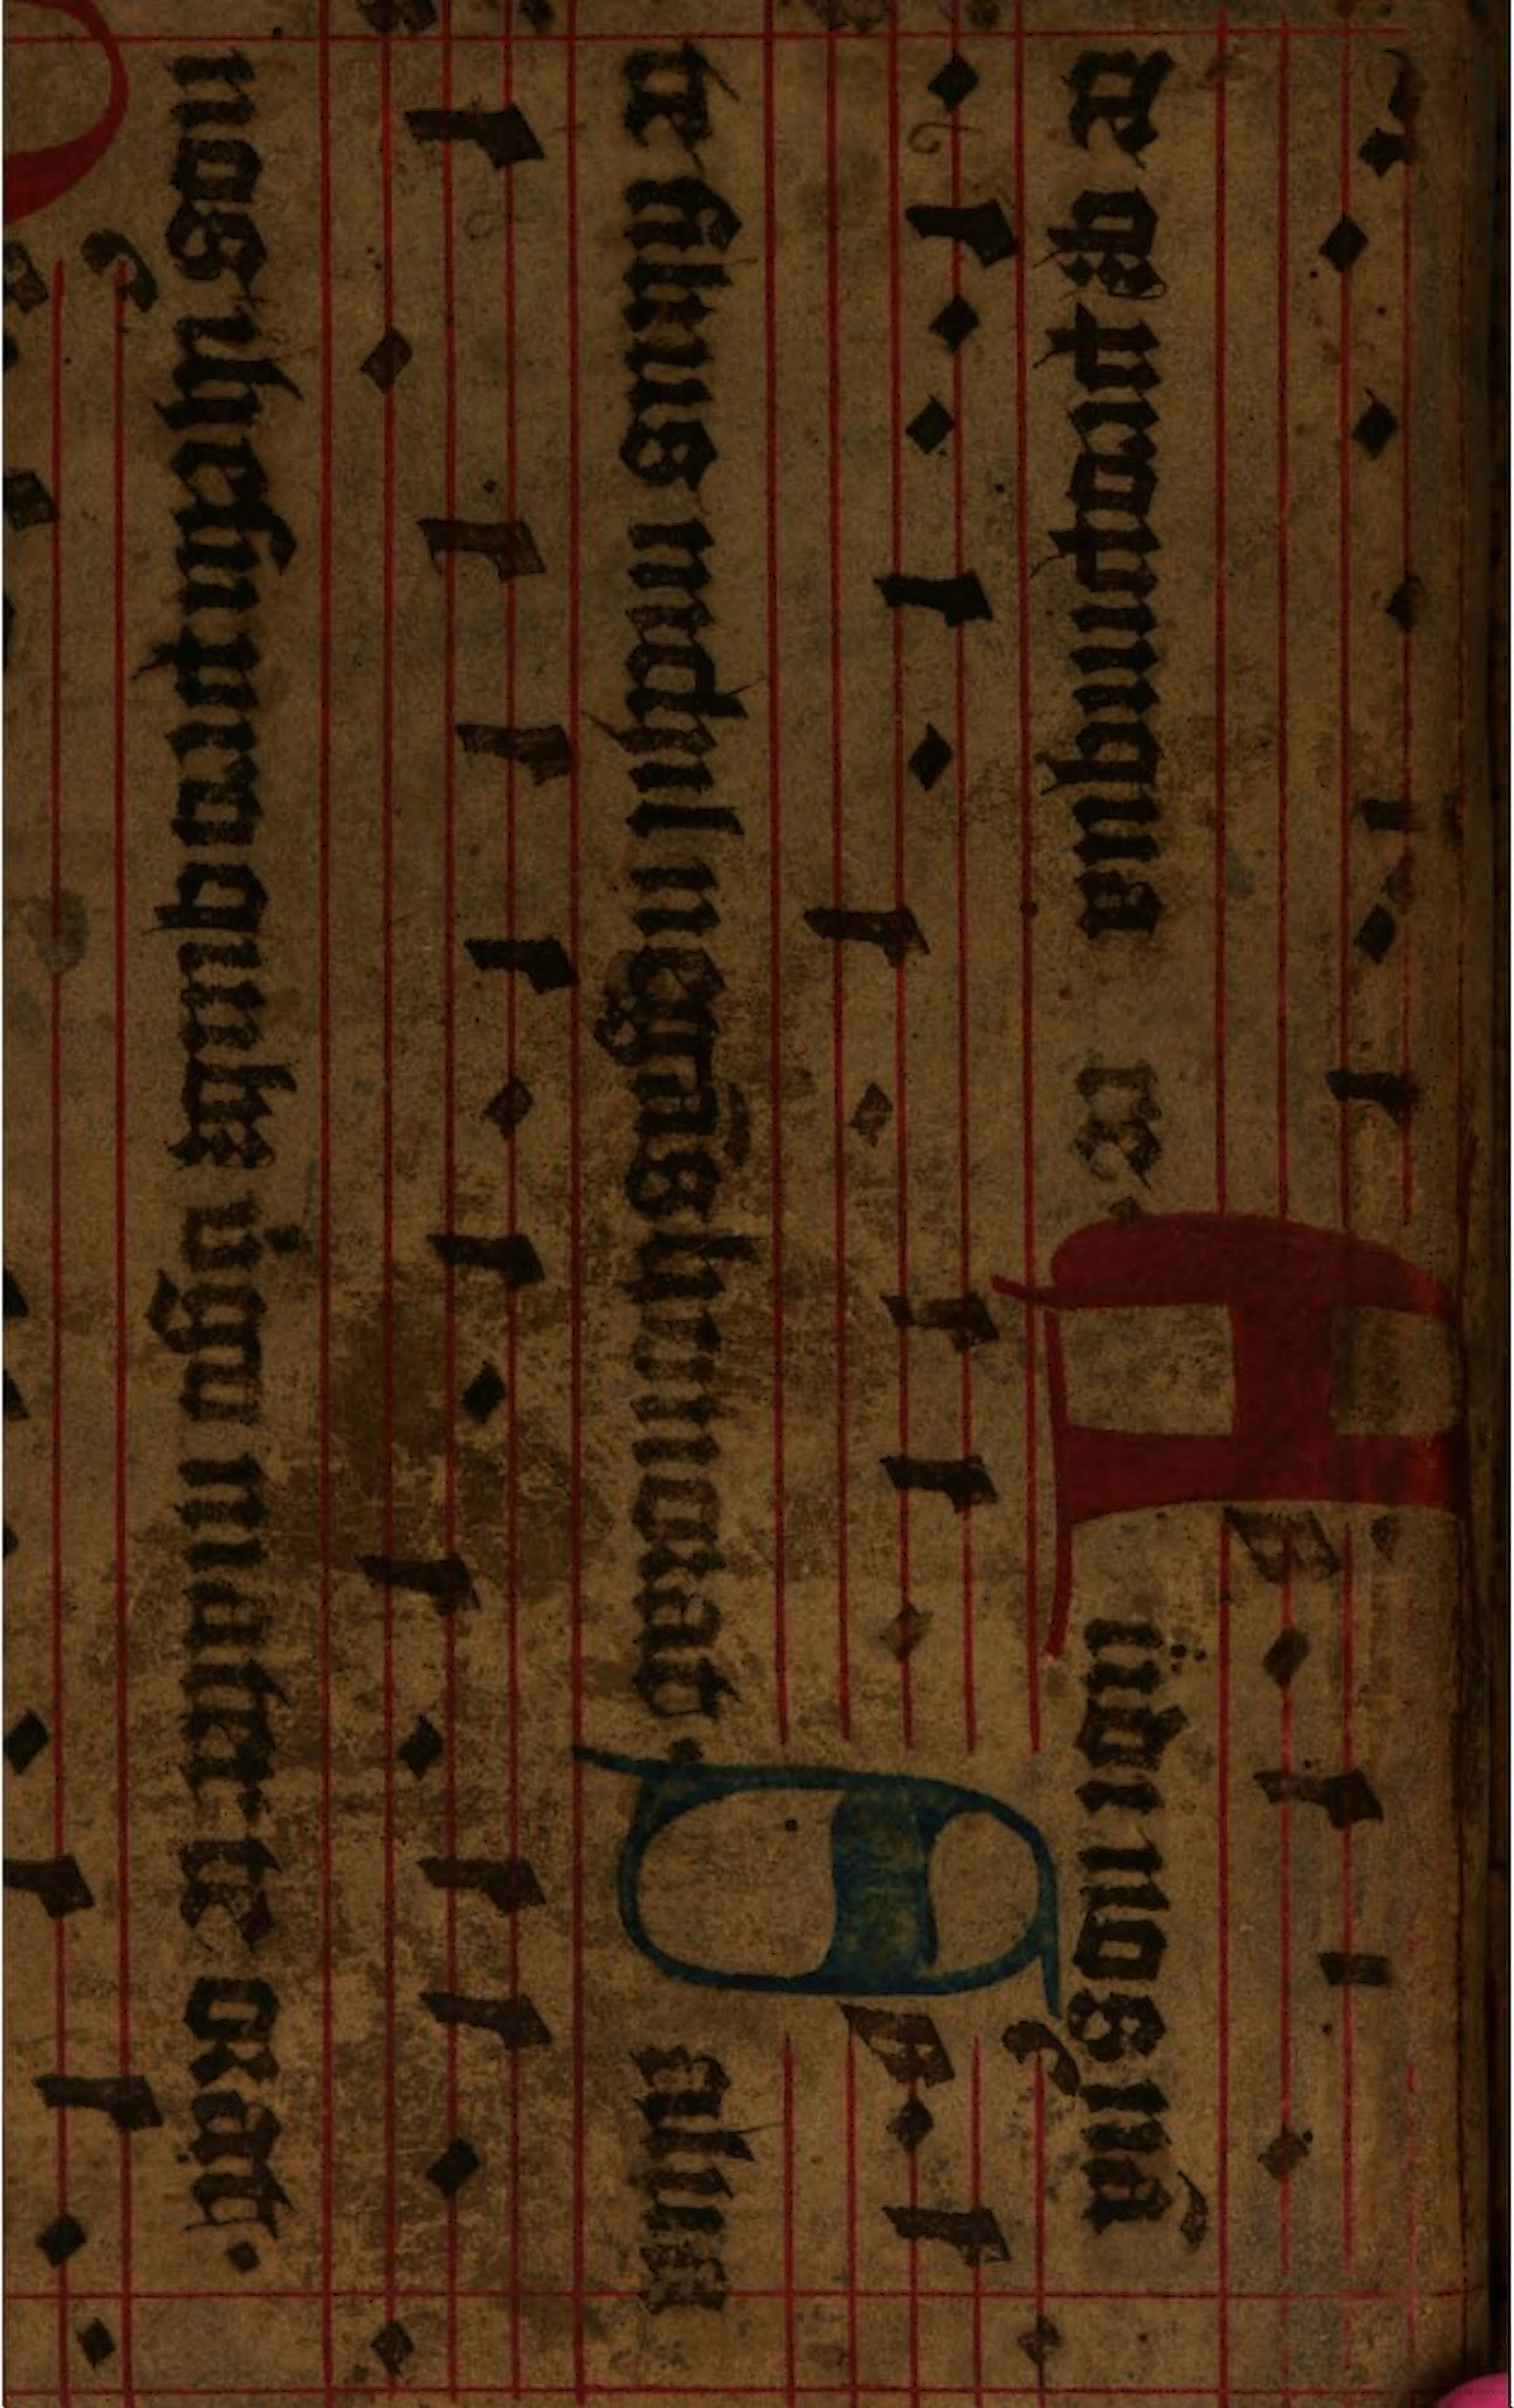 de qʒ propinqua re.
Audi nos nā
te filius nichil negās honorat. Salua
nos ihesu pro quibus virgo mater te orat.